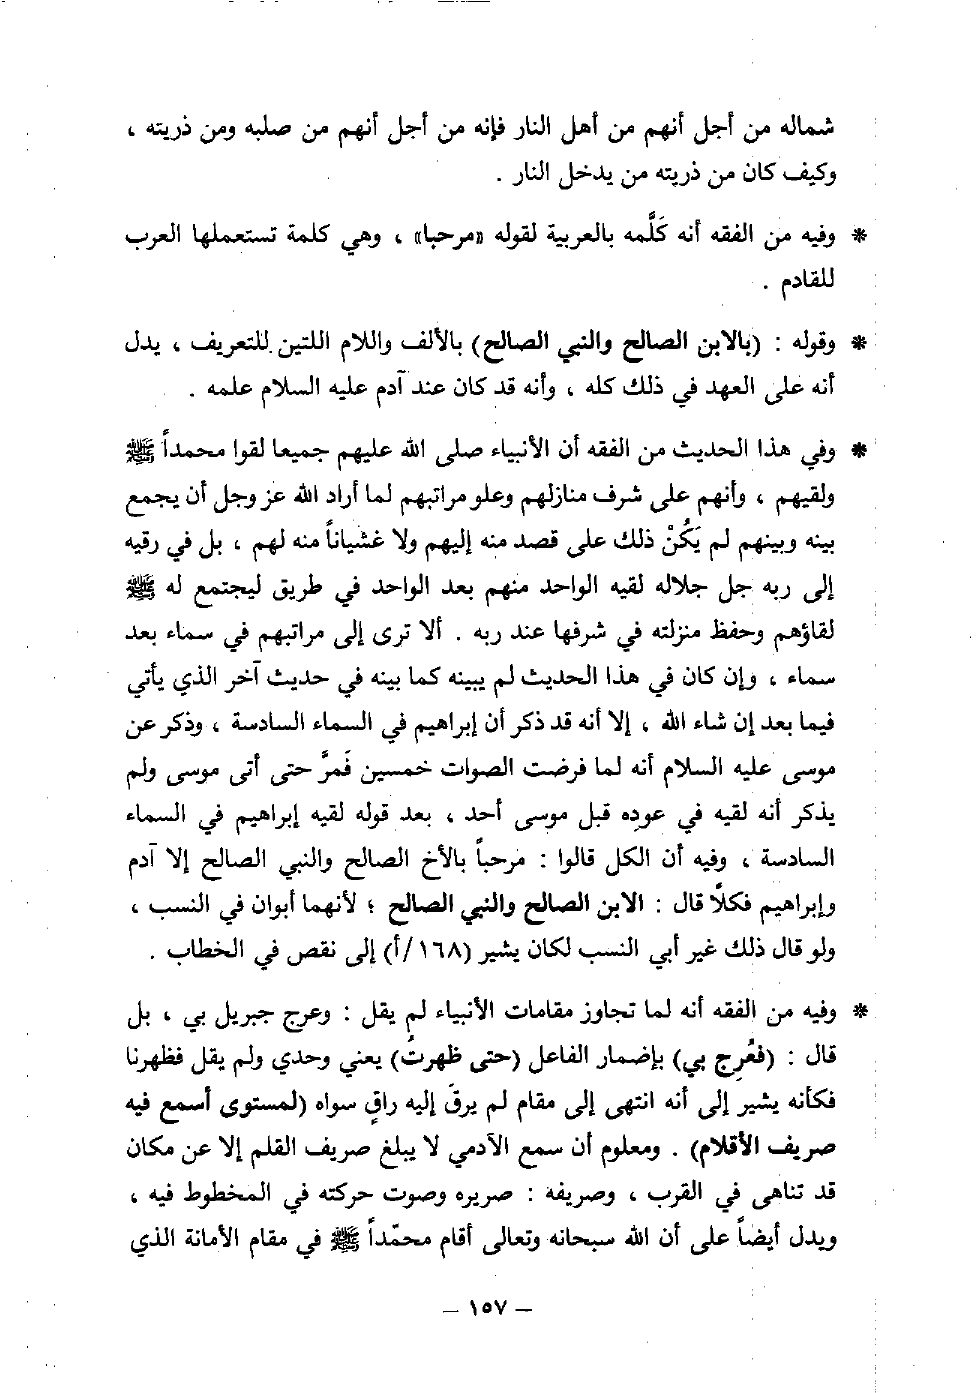 شماله من أجل أنهم من أهل النار فإنه من أجل أنهم من صلبه ومن ذريته ،
وكيف كان من ذريته من يدخل النار .
* وفيه من الفقه أنه كَلَّمه بالعربية لقوله «مرحبا» ، وهي كلمة تستعملها العرب
للقادم .
* وقوله : (بالابن الصالح والنبي الصالح) بالألف واللام اللتين للتعريف ، يدل
أنه على العهد في ذلك كله ، وأنه قد كان عند آدم عليه السلام علمه .
* وفي هذا الحديث من الفقه أن الأنبياء صلى الله عليهم جميعا لقوا محمداً ﷺ
ولقيهم ، وأنهم على شرف منازلهم وعلو مراتبهم لما أراد الله عز وجل أن يجمع
بينه وبينهم لم يَكُنْ ذلك على قصد منه إليهم ولا غشياناً منه لهم ، بل في رقيه
إلى ربه جل جلاله لقيه الواحد منهم بعد الواحد في طريق ليجتمع له ﷺ
لقاؤهم وحفظ منزلته في شرفها عند ربه . ألا ترى إلى مراتبهم في سماء بعد
سماء ، وإن كان في هذا الحديث لم يبينه كما بينه في حديث آخر الذي يأتي
فيما بعد إن شاء الله ، إلا أنه قد ذكر أن إبراهيم في السماء السادسة ، وذكر عن
موسى عليه السلام أنه لما فرضت الصوات خمسين فَمرَّ حتى أتى موسى ولم
يذكر أنه لقيه في عوده قبل موسى أحد ، بعد قوله لقيه إبراهيم في السماء
السادسة ، وفيه أن الكل قالوا : مرحباً بالأخ الصالح والنبي الصالح إلا آدم
وإبراهيم فكلاً قال : الابن الصالح والنبي الصالح ؛ لأنهما أبوان في النسب ،
ولو قال ذلك غير أبي النسب لكان يشير (١٦٨/أ) إلى نقص في الخطاب .
* وفيه من الفقه أنه لما تجاوز مقامات الأنبياء لم يقل : وعرج جبريل بي ، بل
قال : (فعُرِج بي) بإضمار الفاعل (حتى ظهرتُ) يعني وحدي ولم يقل فظهرنا
فكأنه يشير إلى أنه انتهى إلى مقام لم يرقَ إليه راقٍ سواه (لمستوى أسمع فيه
صريف الأقلام) . ومعلوم أن سمع الآدمي لا يبلغ صريف القلم إلا عن مكان
قد تناهى في القرب ، وصريفه : صريره وصوت حركته في المخطوط فيه ،
ويدل أيضاً على أن الله سبحانه وتعالى أقام محمّداً ﷺ في مقام الأمانة الذي
– ١٥٧ –